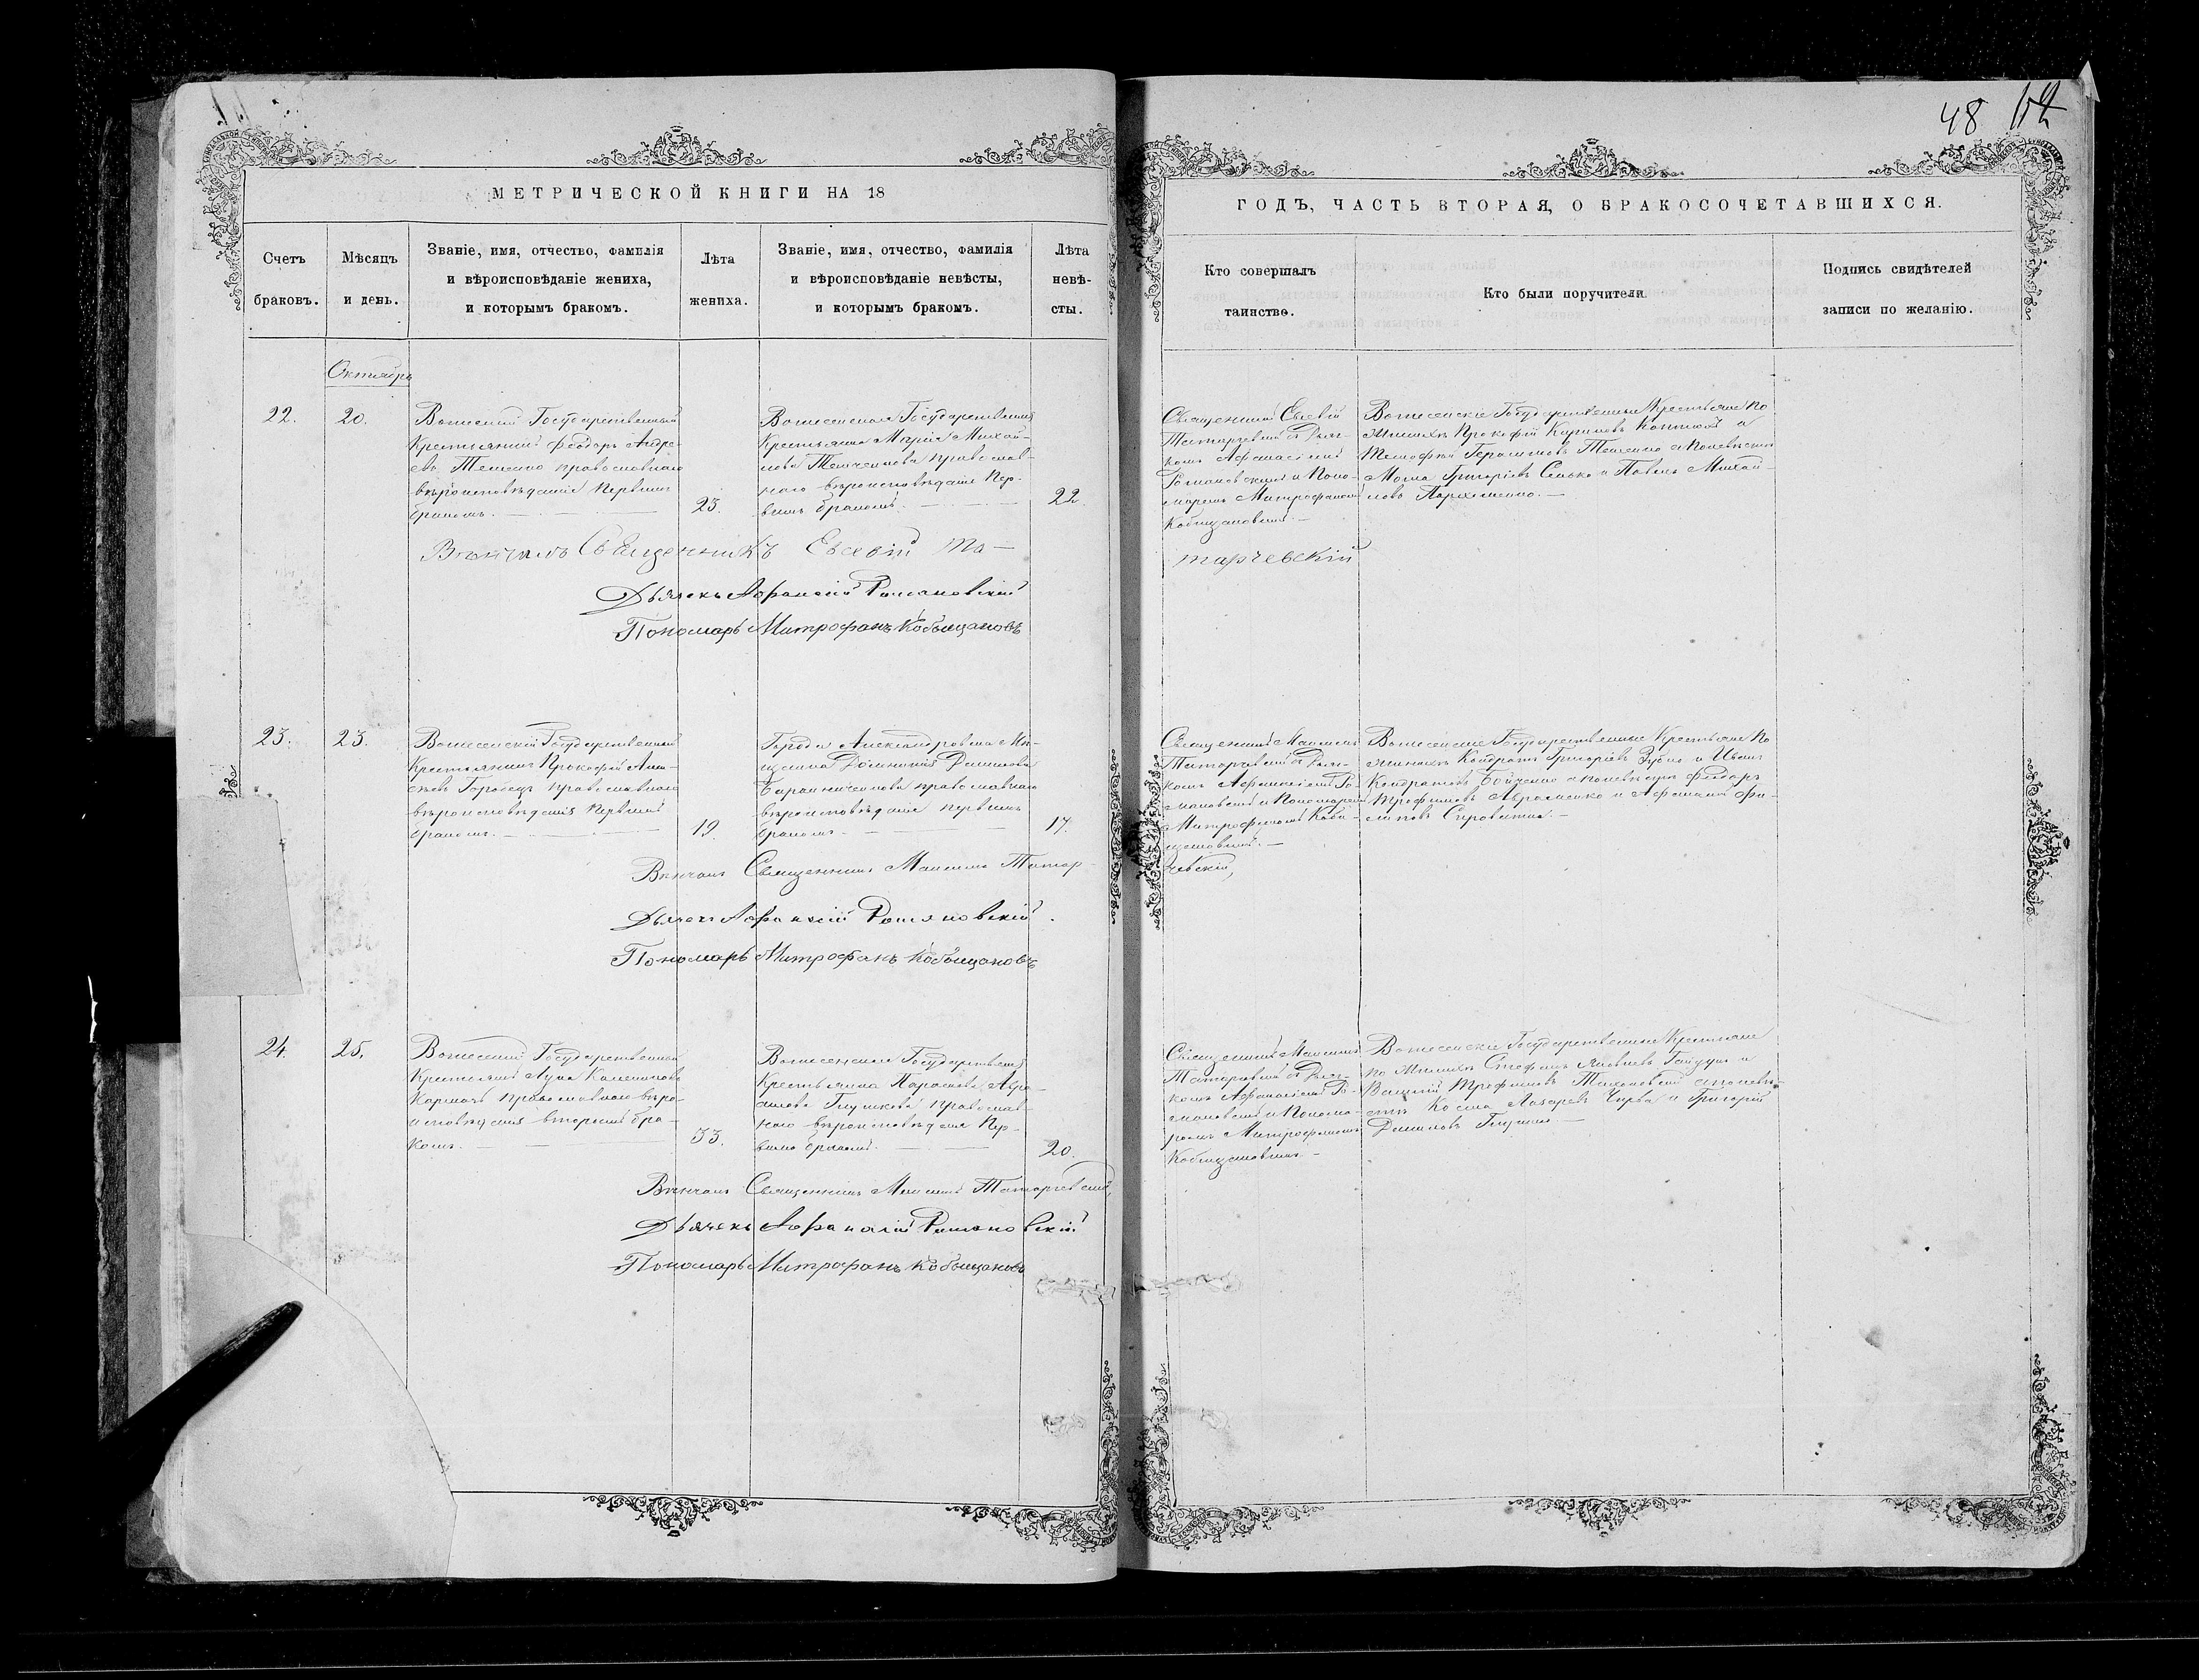 48
МЕТРИЧЕСКОЙ КНИГИ НА 18
ГОДЪ, ЧАСТЬ ВТОРАЯ, О БРАКОСОЧЕТАВШИХСЯ.
Счетъ
браковъ.
Мѣсяцъ
и день.
Званіе, имя, отчество, фамилія
и вѣроисповѣданіе жениха,
и которымъ бракомъ.
Лѣта
жениха.
Званіе, имя, отчество, фамилія
и вѣроисповѣданіе невѣсты,
и которымъ бракомъ.
Лѣта
невѣ-
сты.
Кто совершалъ
таинство.
Кто были поручители.
Подпись свидѣтелей
записи по желанію.
Октябрь
22.
20.
Государственный
Крестьянинъ Феодоръ Андре-
евъ Тещенко православнаго
вѣроисповѣданія первымъ
бракомъ.
23.
Вознесенская Государственная
Крестьянка Марія Михай-
лова православ-
наго вѣроисповѣданія пер-
вымъ бракомъ.
22.
Священникъ Евсевій
Татарчевскій съ Дьяч-
комъ Афанасіемъ
Романовскимъ и Поно-
маремъ Митрофаномъ
Кобыщановымъ.
Вознесенскіе Государственные Крестьяне по
женихѣ Прокофій и
Тимофей Герасимовъ Тещенко а по невѣстѣ
Григоріевъ и Павелъ Михай-
ловъ Пархоменко.
Вѣнчалъ Священникъ Евсевій Та-
тарчевскій
Дьячекъ Афанасій Романовскій
Пономарь Митрофанъ Кобыщановъ
23.
23.
Вознесенскій Государственный
Крестьянинъ Прокофій
православнаго
вѣроисповѣданія первымъ
бракомъ.
19.
Города Александровска Мѣ-
щанка Домникія
православнаго
вѣроисповѣданія первымъ
бракомъ.
17.
Священникъ Максимъ
Татарчевскій съ Дьяч-
комъ Афанасіемъ Ро-
мановскимъ и Пономаремъ
Митрофаномъ Кобы-
щановымъ.
Вознесенскіе Государственные Крестьяне по
женихѣ Кондратъ Григоріевъ Зубко и Иванъ
Кондратовъ Бойченко а по невѣстѣ Феодоръ
Трофимовъ Авраменко и Афанасій Фи-
липовъ
Вѣнчалъ Священникъ Максимъ Татар-
чевскій,
Дьячекъ Афанасій Романовскій.
Пономарь Митрофанъ Кобыщановъ
24.
25.
Государственный
Крестьянинъ Лука
православнаго вѣро-
исповѣданія вторымъ бра-
комъ.
33.
Вознесенская Государственная
Крестьянка Параскева Авра-
мова Глушкова православ-
наго вѣроисповѣданія пер-
вымъ бракомъ.
20.
Священникъ Максимъ
Татарчевскій съ Дьяч-
комъ Афанасіемъ Ро-
мановскимъ и Понома-
ремъ Митрофаномъ
Кобыщановымъ.
Вознесенскіе Государственные Крестьяне
по женихѣ Стефанъ Яковлевъ Гайдукъ и
Василій Трофимовъ Тихоновскій а по невѣ-
стѣ Косма Лазаревъ Чирва и Григорій
Даниловъ
Вѣнчалъ Священникъ Максимъ Татарчевскій,
Дьячекъ Афанасій Романовскій
Пономарь Митрофанъ Кобыщановъ